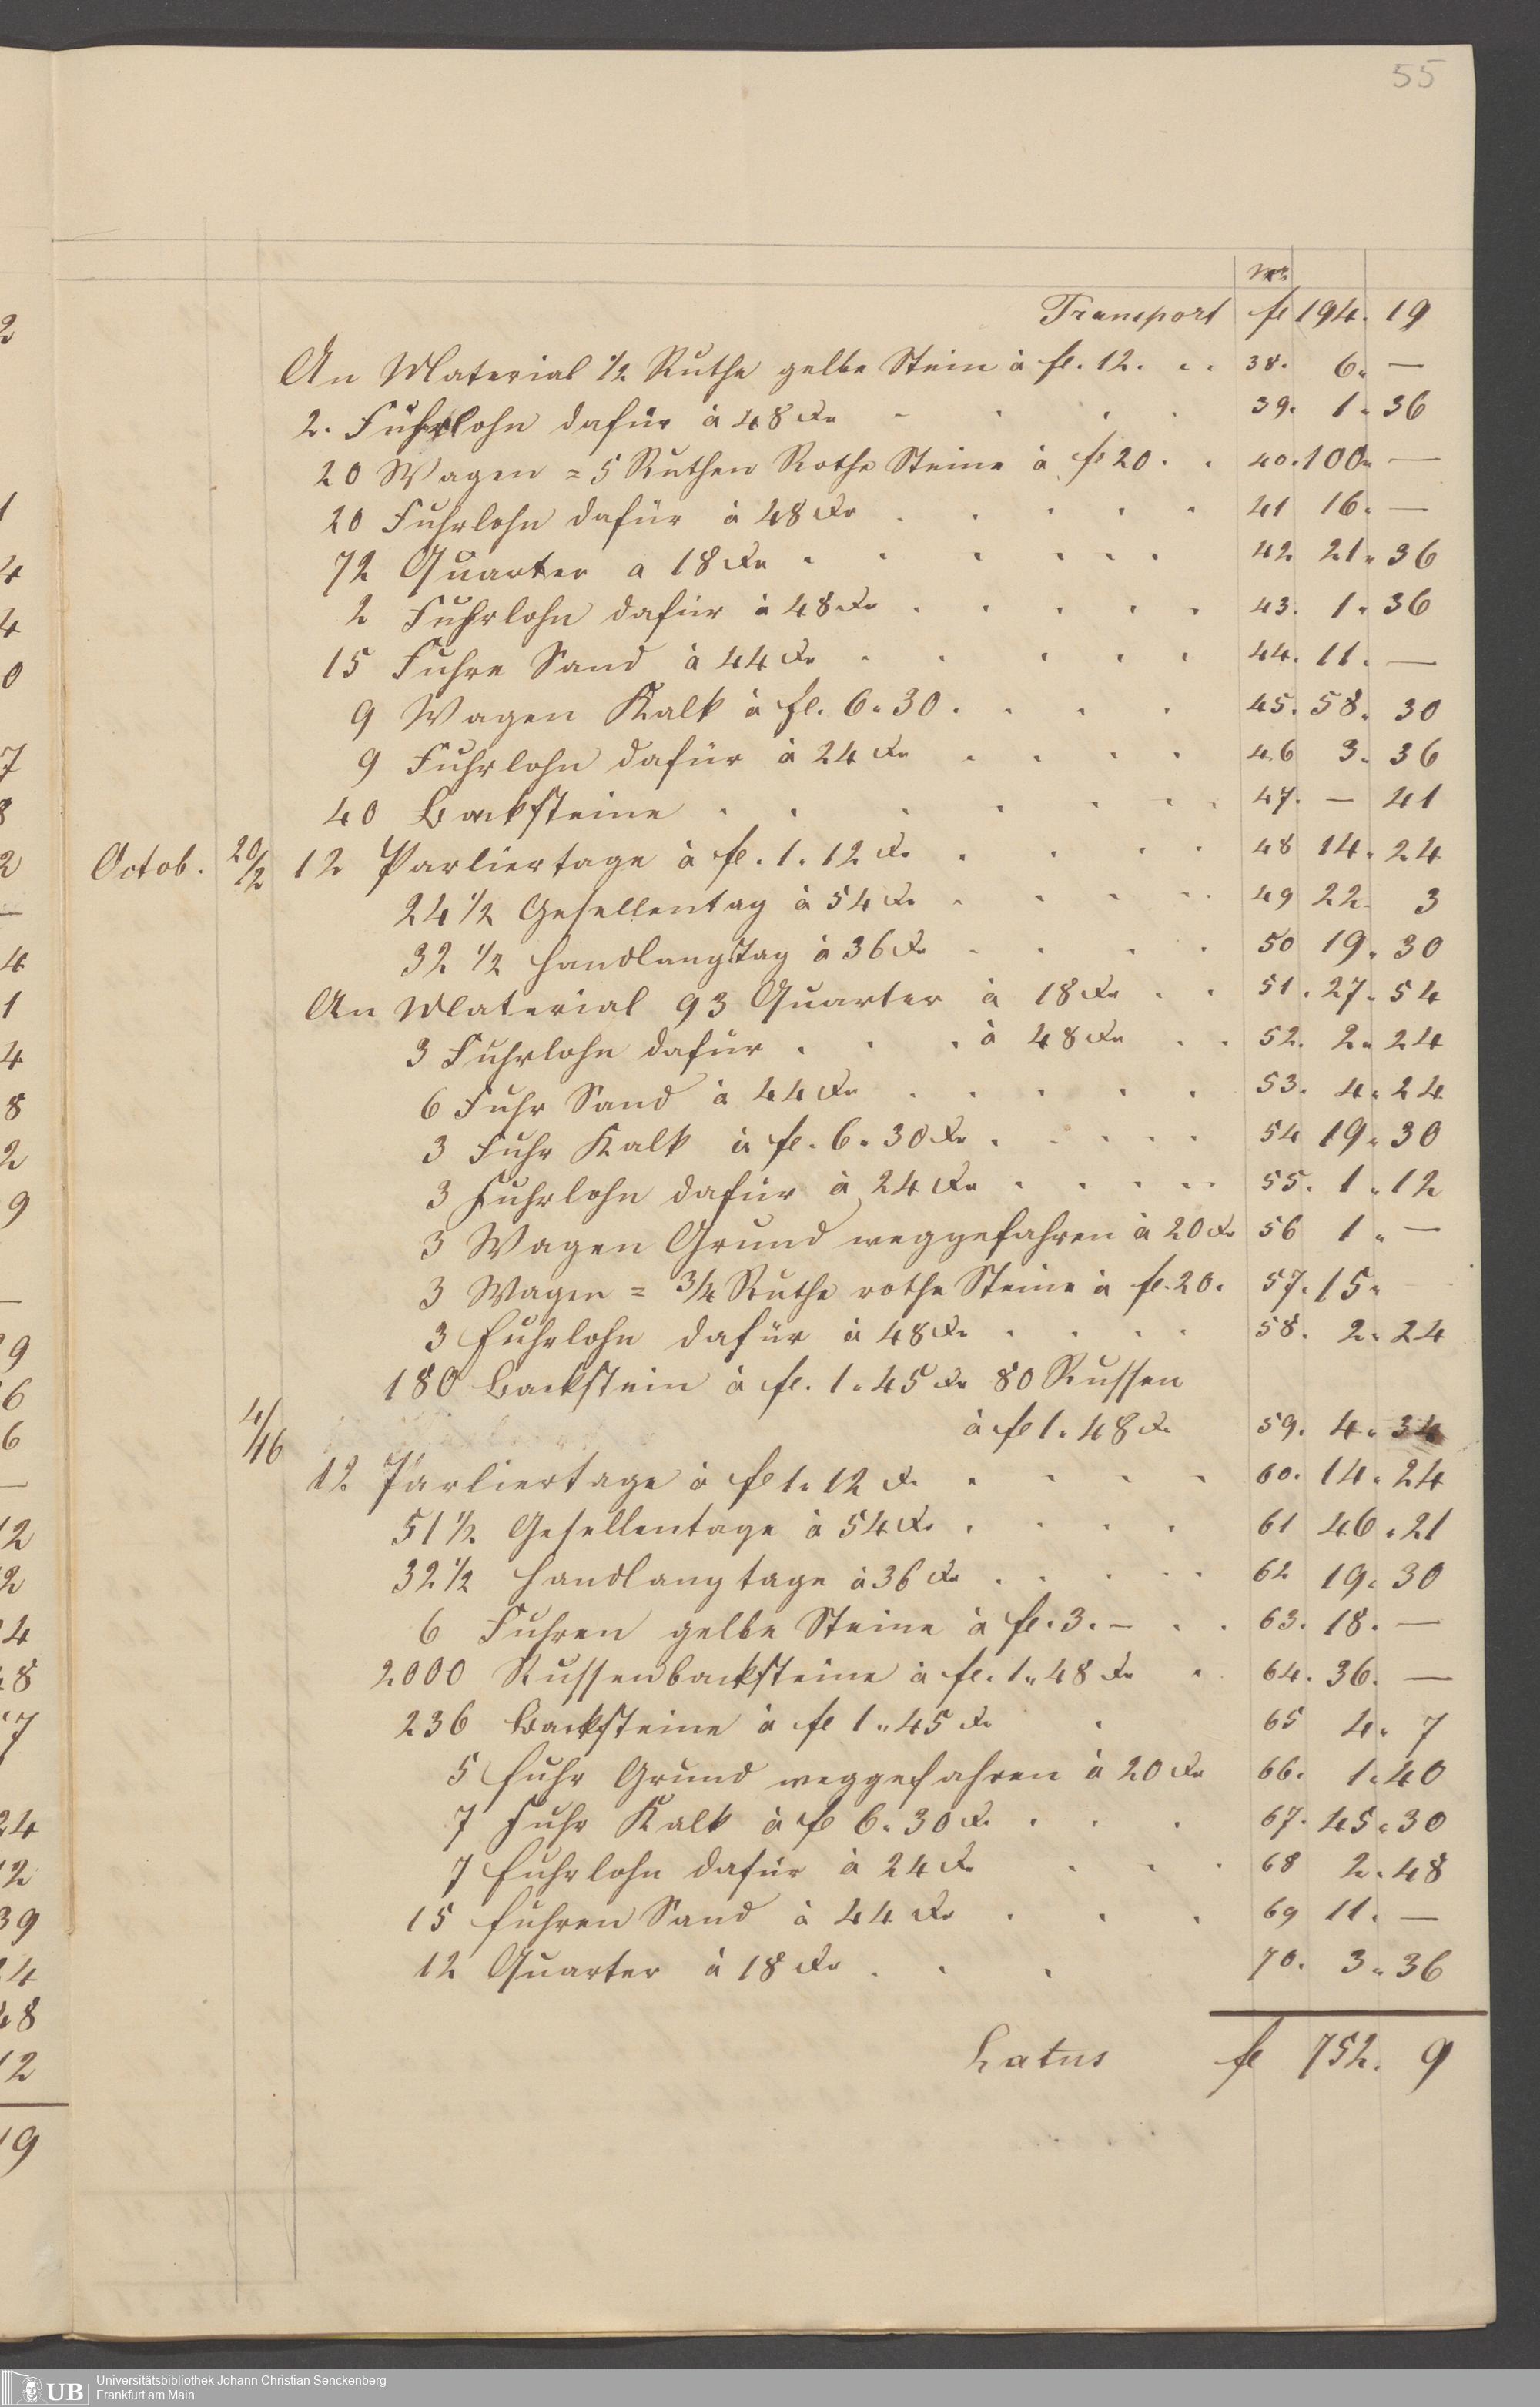 55
Nr.
Transport fl 194. 19
An Material 1/2 Ruthe gelbe Stein à fl. 12. . . 38. 6. —
2. Fuhrlohn dafür à 48 Xr - . . . 39. 1. 36
20 Wagen = 5 Ruthen Rothe Steine à fl 20. . 40. 100. —
20 Fuhrlohn dafür à 48 Xr . . . . . 41 16. —
72 Quarter a 18 Xr . . . . . . 42. 21. 36
2 Fuhrlohn dafür à 48 Xr . . . . . 43. 1. 36
15 Fuhre Sand à 44 Xr . . . . . 44. 11. —
9 Wagen Kalk à fl. 6. 30. . . . 45. 58. 30
9 Fuhrlohn dafür à 24 Xr . . . . 46 3. 36
40 Backsteine . . . . . . . 47. — 41
Octob. 20/2 12 Parliertage à fl. 1. 12 Xr . . . . 48 14. 24
24 1/2 Gesellentag à 54 Xr . . . . . 49 22. 3
32 1/2 Handlangstag à 36 Xr . . . . 50 19. 30
An Material 93 Quarter à 18 Xr . . 51. 27. 54
3 Fuhrlohn dafür . . . à 48 Xr . . 52. 2. 24
6 Fuhr Sand à 44 Xr . . . . . 53. 4. 24
3 Fuhr Kalk à fl. 6. 30 Xr . . . . . 54 19. 30
3 Fuhrlohn dafür à 24 Xr . . . . . 55. 1. 12
3 Wagen Grund weggefahren à 20 Xr 56 1. —
3 Wagen = 3/4 Ruthe rothe Steine à fl. 20. 57. 15.
3 Fuhrlohn dafür à 48 Xr . . . . 58. 2. 24
180 Backstein à fl. 1. 45 Xr 80 Russen
4/16 à fl 1. 48 Xr 59. 4. 34
12 Parliertage à fl 1. 12 Xr . . . . 60. 14. 24
51 1/2 Gesellentage à 54 Xr . . . . 61 46. 21
32 1/2 Handlangtage à 36 Xr . . . . . 62 19. 30
6 Fuhren gelbe Steine à fl. 3. — . . 63. 18. —
2000 Russenbacksteine à fl. 1. 48 Xr . 64. 36. —
236 Backsteine à fl 1. 45 Xr . 65 4. 7
5 Fuhr Grund weggefahren à 20 Xr 66. 1. 40
7 Fuhr Kalk à fl 6. 30 Xr . . . 67. 45. 30
7 Fuhrlohn dafür à 24 Xr . . . 68 2. 48
15 Fuhren Sand à 44 Xr . . . 69 11. —
12 Quarter à 18 Xr . . . 70. 3. 36
Latus fl 752. 9
UB
Universitätsbibliothek Johann Christian Senckenberg
Frankfurt am Main